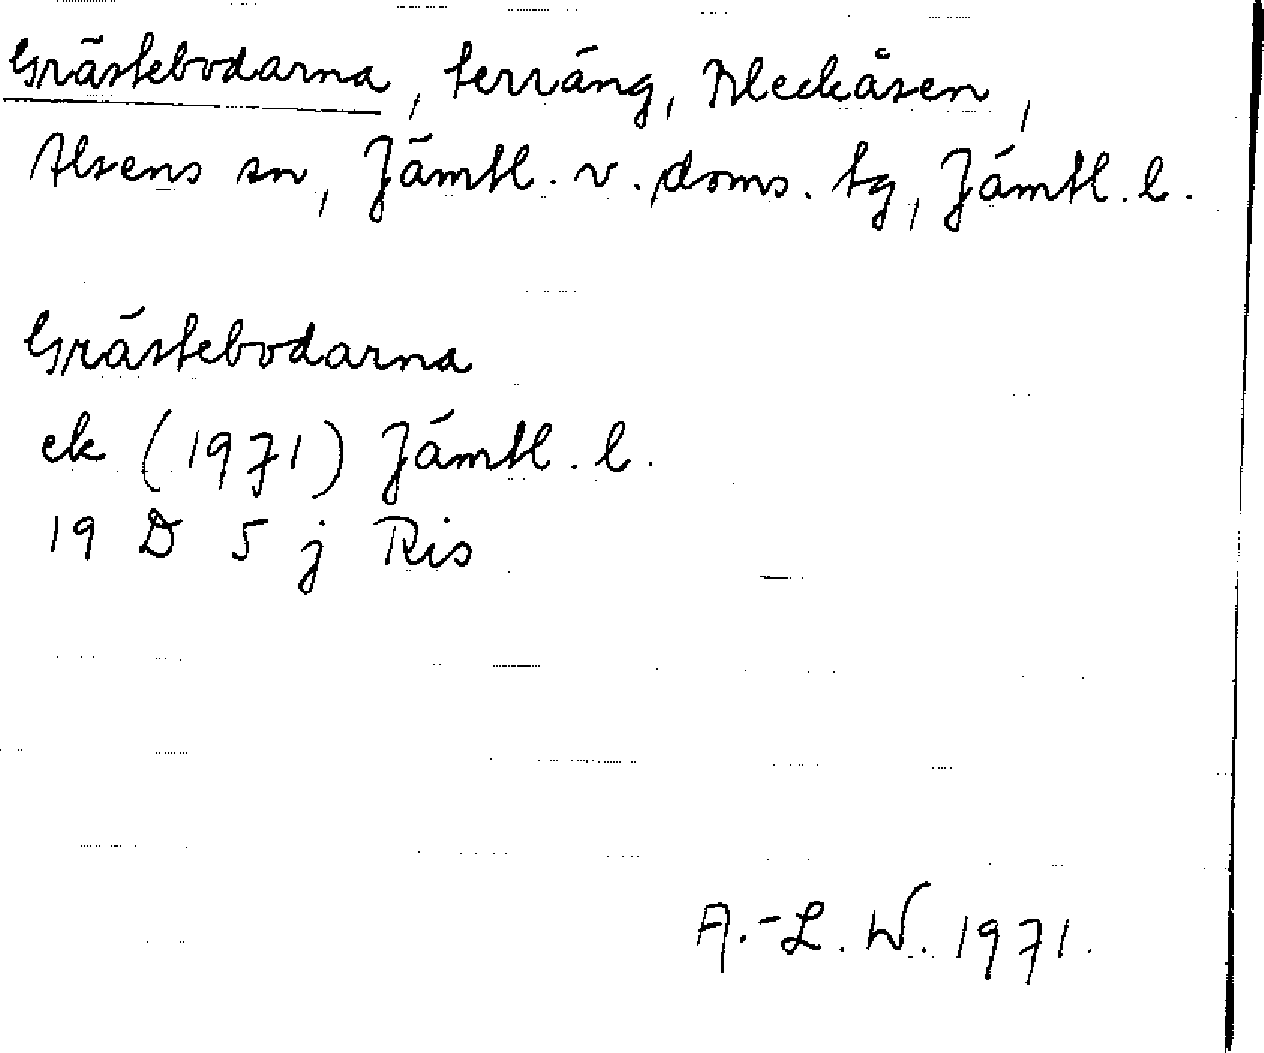 Grästebodarna, terräng, Bleckåsen,
Alsens sn, Jämtl. v. doms. tg, Jämtl. l.
Grästebodarna
ek (1971) Jämtl. l.
19 D 5 j Ris
A.-L. W. 1971.